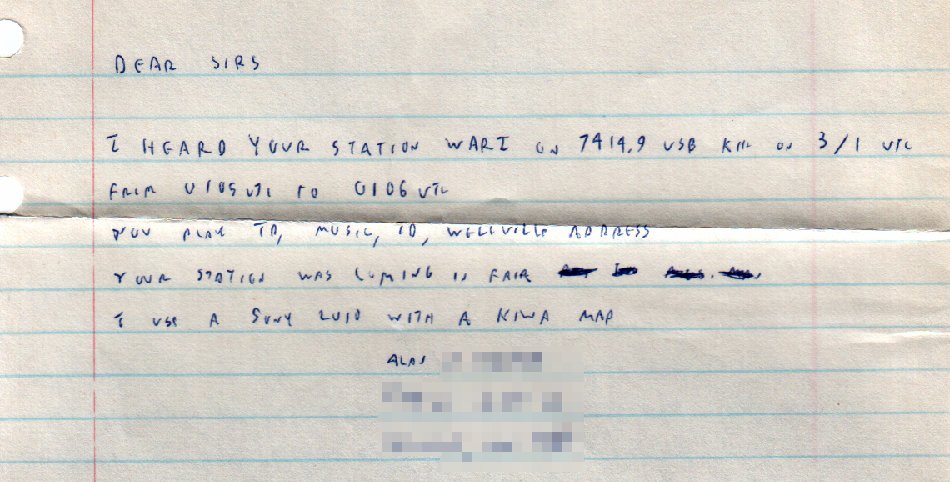 DEAR SIRS
I HEARD YOUR STATION WARI ON 7414.9 USB KHz ON 3/1 UTC
FROM 0105 UTC TO 0106 UTC
YOU PLAY ID, MUSIC, ID, WELLVILLE ADDRESS
YOUR STATION WAS COMING IN FAIR
I USE A SONY 2010 WITH A KIWA MAP
ALAN